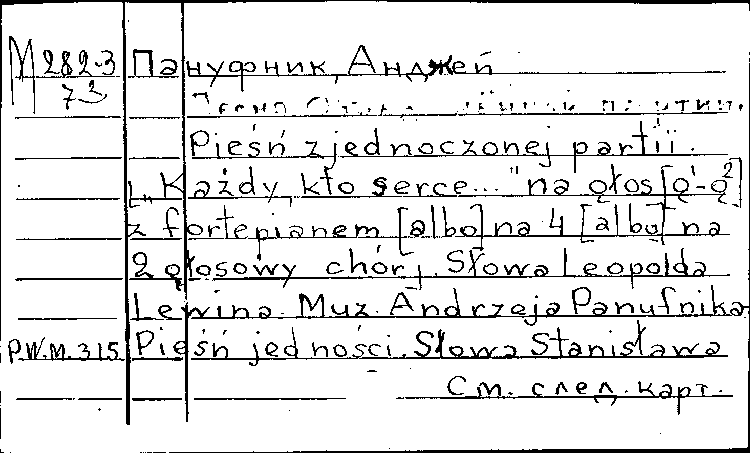 М 282-3 Пануфник, Анджей
73
Pieśń zjednoczonej partii.
[„Każdy, kto serce..." na głos [g¹-g²]
z fortepianem [albo] na 4 [albo] na
2 głosowy chór]. Słowa Leopolda
Lewina. Muz. Andrzeja Panufnika
P.W.M. 315. Pieśń jedności. Słowa Stanisława
См. след. карт.